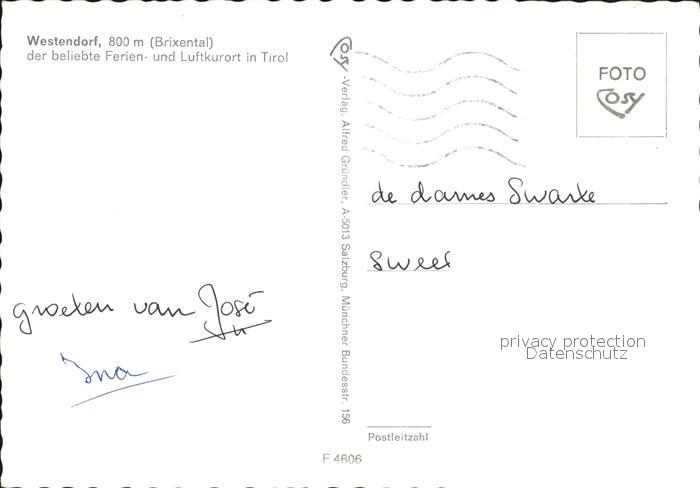 Westendorf, 800 m (Brixental)
der beliebte Ferien- und Luftkurort in Tirol
groeten van José
Ina
Cosy
-Verlag, Alfred Gründler, A-5013 Salzburg, Münchner Bundesstr. 156
FOTO
Cosy
de dames Swarte
Sweel
privacy protection
Datenschutz
Postleitzahl
F 4606